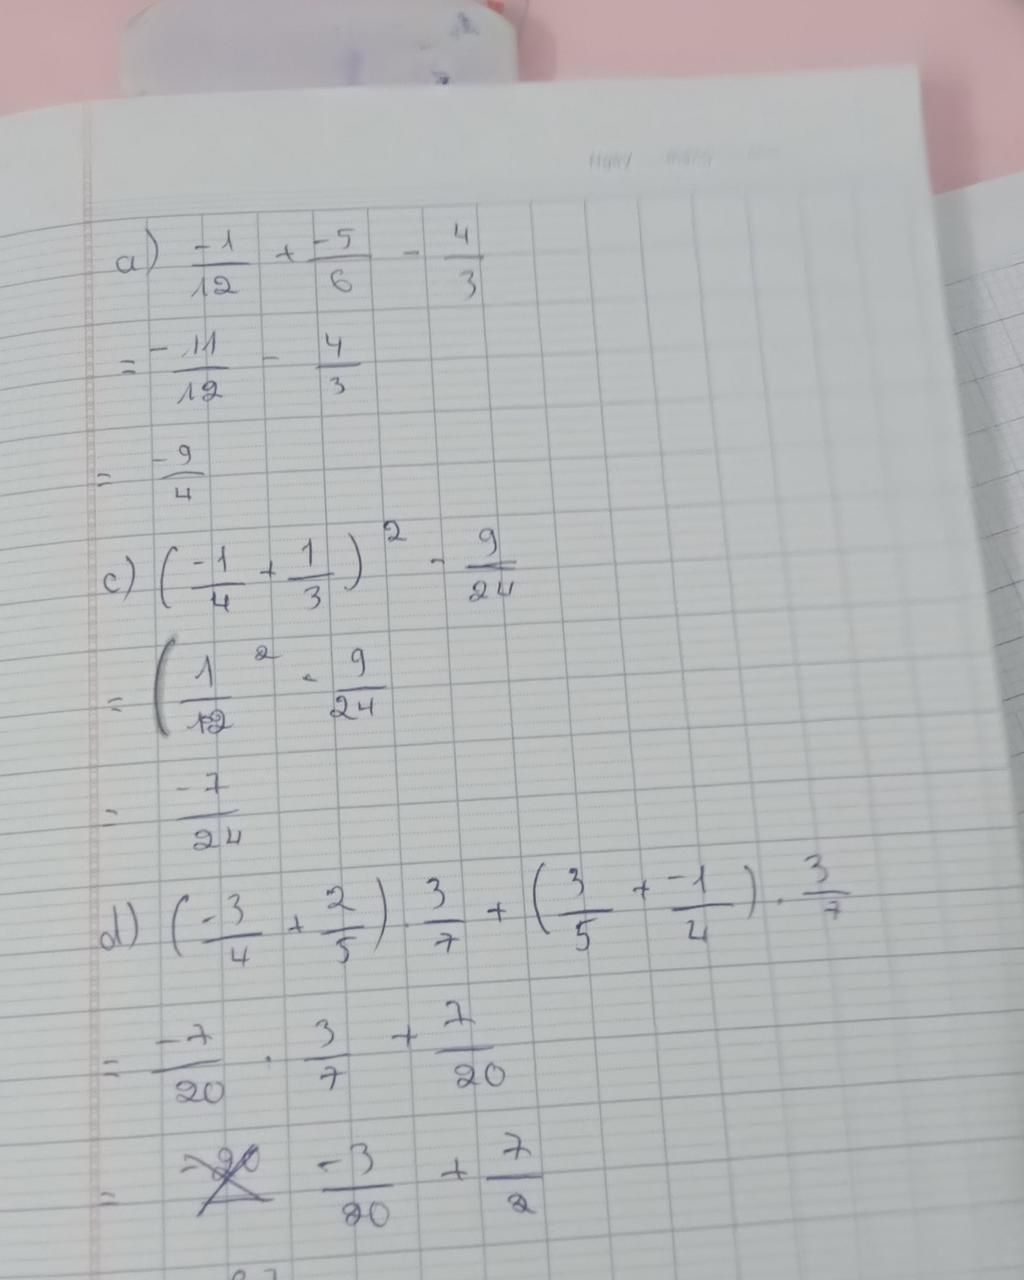 a) -1/12 + -5/6 - 4/3
= -11/12 - 4/3
= -9/4
c) (-1/4 + 1/3)² - 9/24
= (1/12 ² - 9/24
= -7/24
d) (-3/4 + 2/5) . 3/7 + (3/5 + -1/4) . 3/7
= -7/20 . 3/7 + 7/20
= -3/20 + 7/2